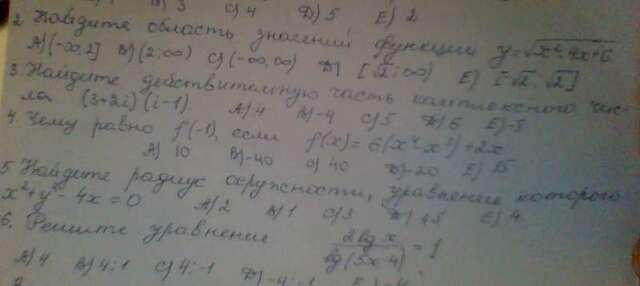 В) 3 С) 4 D) 5 Е) 2
2. Найдите область значений функции y=√x²-4x+6
А) (-∞,2] В) (2;∞) С) (-∞,∞) D) [√2;∞) Е) [-√2;√2]
3. Найдите действительную часть комплексного чис-
ла (3+2i)(i-1) А) 4 В) -4 С) 5 D) 6 Е) -5
4. Чему равно f'(-1), если f(x)=6(x⁴-x³)+2x
А) 10 В) -40 С) 40 D) -20 Е) 15
5. Найдите радиус окружности, уравнение которого
x²+y²-4x=0 А) 2 В) 1 С) 3 D) 1,5 Е) 4
6. Решите уравнение 2lg x / lg(5x-4) = 1
А) 4 В) 4;1 С) 4;-1 D) -4;-1 Е) -4